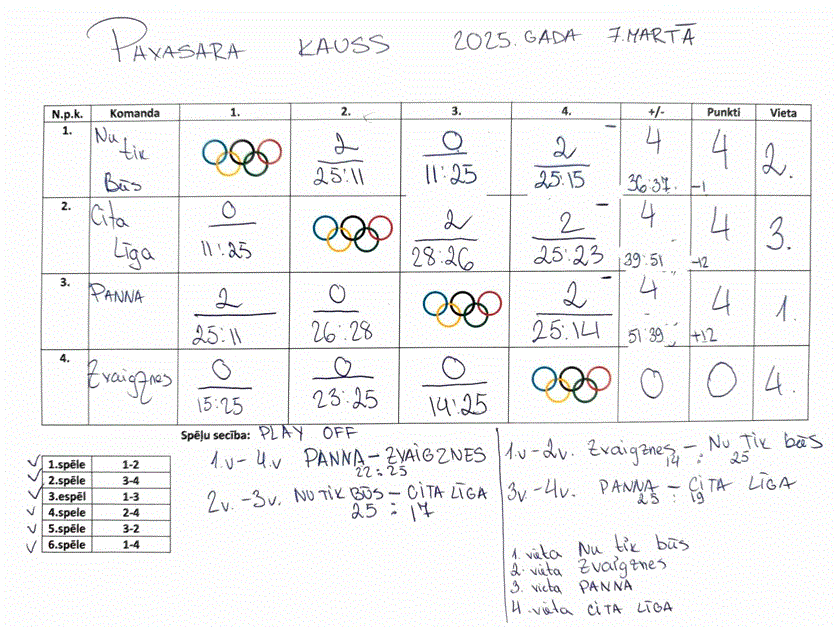 PAVASARA KAUSS 2025. GADA 7. MARTĀ
N.p.k. Komanda 1. 2. 3. 4. +/- Punkti Vieta
1. Nu tik Būs 2 25:11 0 11:25 2 25:15 4 36:37 4 -1 2.
2. Cita Līga 0 11:25 2 28:26 2 25:23 4 39:51 4 -12 3.
3. PANNA 2 25:11 0 26:28 2 25:14 4 51:39 4 +12 1.
4. Zvaigznes 0 15:25 0 23:25 0 14:25 0 0 4.
Spēļu secība: PLAY OFF
1.v - 4.v PANNA - ZVAIGZNES
22:25
2v. - 3v. NU TIK BŪS - CITA LĪGA
25:17
1.v - 2v. Zvaigznes - Nu Tik būs
14:25
3v. - 4v. PANNA - CITA LĪGA
25:19
1.spēle 1-2
2.spēle 3-4
3.espēl 1-3
4.spele 2-4
5.spēle 3-2
6.spēle 1-4
1. vieta Nu tik būs
2. vieta Zvaigznes
3. vieta PANNA
4. vieta CITA LĪGA